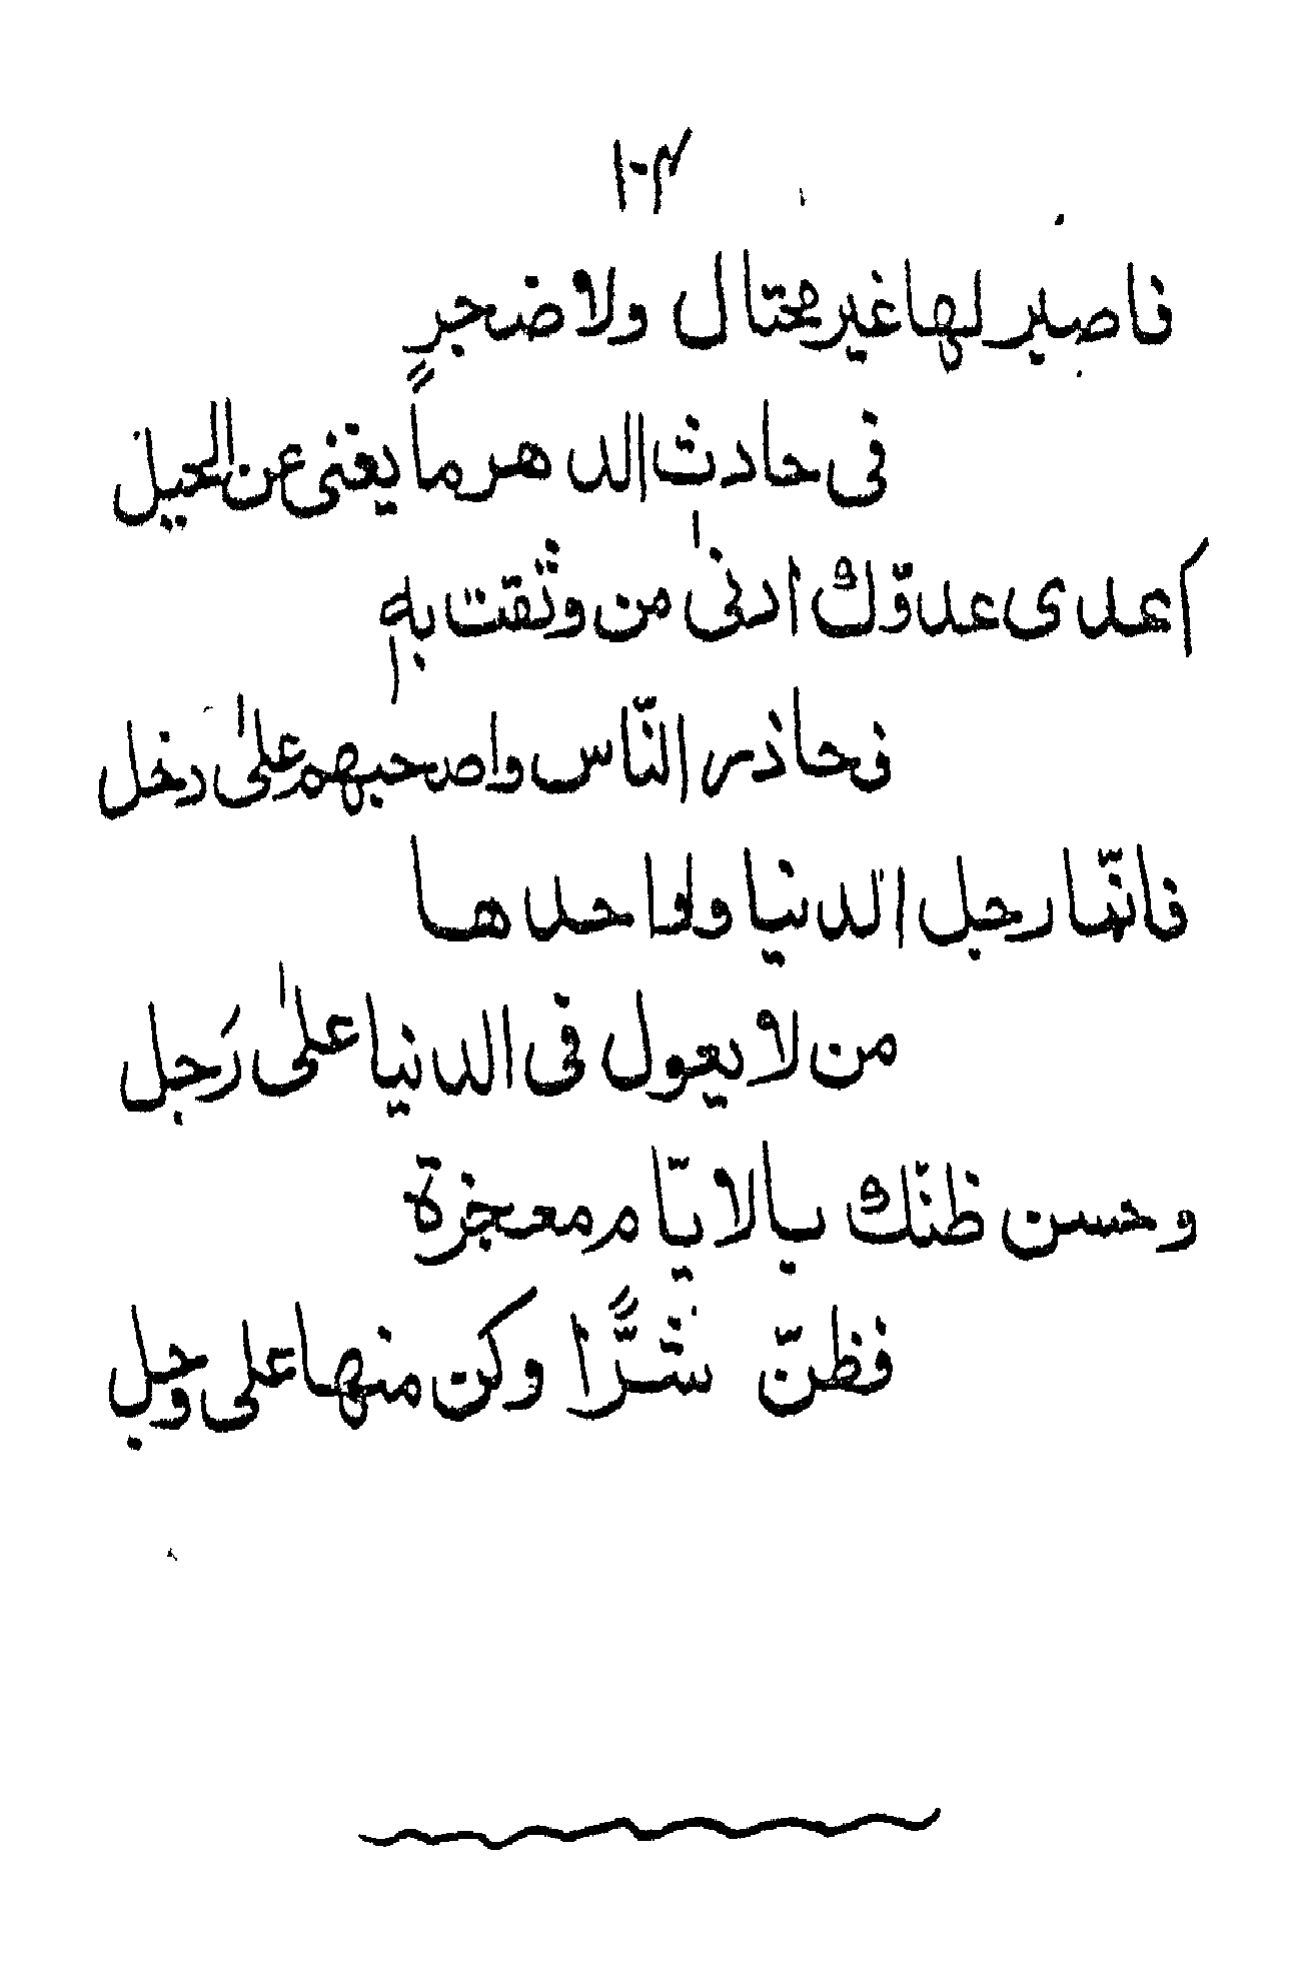 ١٠٣
فاصبر لها غير محتال ولا ضجرٍ
فى حادث الدهر ما يغنى عن الحيل
اعدى عدوّك ادنىٰ من وثقت بهٖ
فحاذر النّاس واصحبهم علىٰ دخل
فانّما رجل الدنيا وواحدها
من لا يعول فى الدنيا علىٰ رَجل
وحسن ظنّك بالايّام معجزة
فظنّ شرًّا وكن منها على وجل